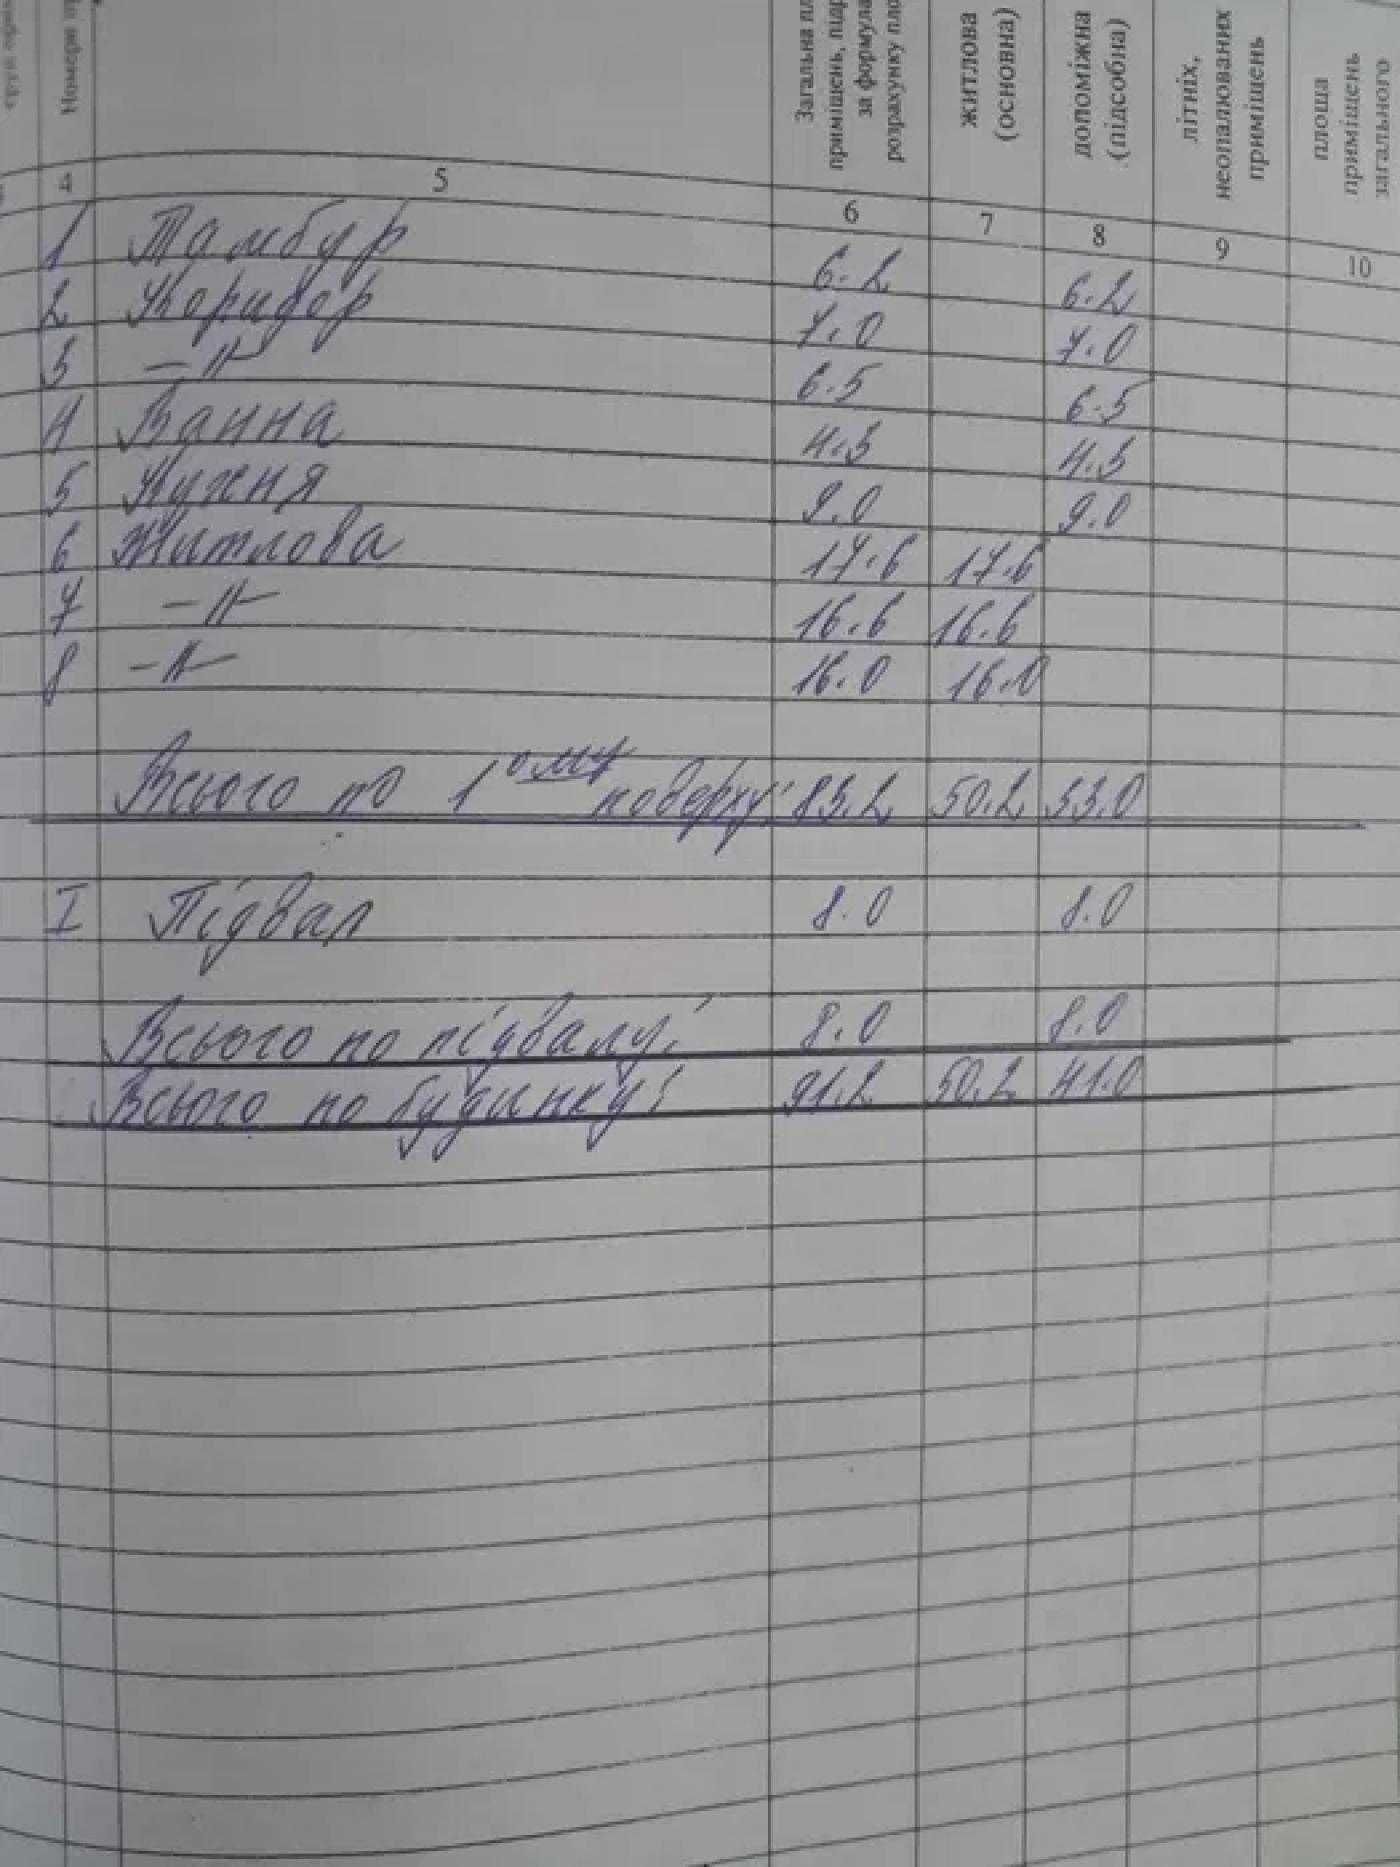 Номери пр
Загальна пл
приміщень, підр
за формула
розрахунку пло
житлова
(основна)
допоміжна
(підсобна)
літніх,
неопалюваних
приміщень
площа
приміщень
загального
4 5 6 7 8 9 10
1 Тамбур 6.2 6.2
2 Коридор 7.0 7.0
3 -//- 6.5 6.5
4 Ванна 4.3 4.3
5 Кухня 9.0 9.0
6 Житлова 17.6 17.6
7 -//- 16.6 16.6
8 -//- 16.0 16.0
Всього по 1ому поверху: 83.2 50.2 33.0
I Підвал 8.0 8.0
Всього по підвалу: 8.0 8.0
Всього по будинку: 91.2 50.2 41.0